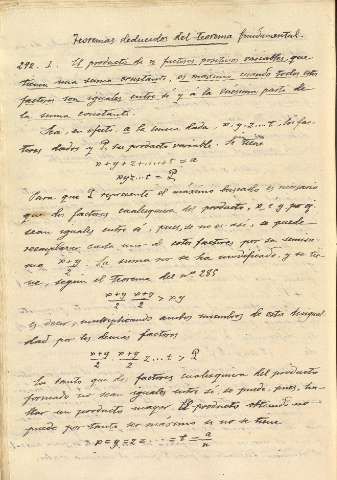 Teoremas deducidos del teorema fundamental.
292. I. El producto de n factores positivos variables, que
tienen una suma constante, es máximo cuando todos estos
factores son iguales entre sí y á la enésima parte de
la suma constante.
Sea, en efecto, a la suma dada, x, y, z...t, los fac-
tores dados y P, su producto variable. Se tiene
x+y+z+....+t = a
xyz...t = P
Para que P represente el máximo buscado es necesario
que dos factores cualesquiera del producto, x é y
sean iguales entre sí, pues, si no es así, se puede
reemplazar cada uno de estos factores por su semisu-
ma x+y/2. La suma no se ha modificado, y se tie-
ne, según el teorema del nº 285
x+y/2 x+y/2 > xy
es decir, multiplicando ambos miembros de esta desigual
dad por los demas factores
x+y/2 x+y/2 z...t > P
En tanto que dos factores cualesquiera del producto
formado no sean iguales entre sí, se puede, pues, ha-
llar un producto mayor. El producto obtenido no
puede por tanto ser máximo si no se tiene
x=y=z=....=t=a/n